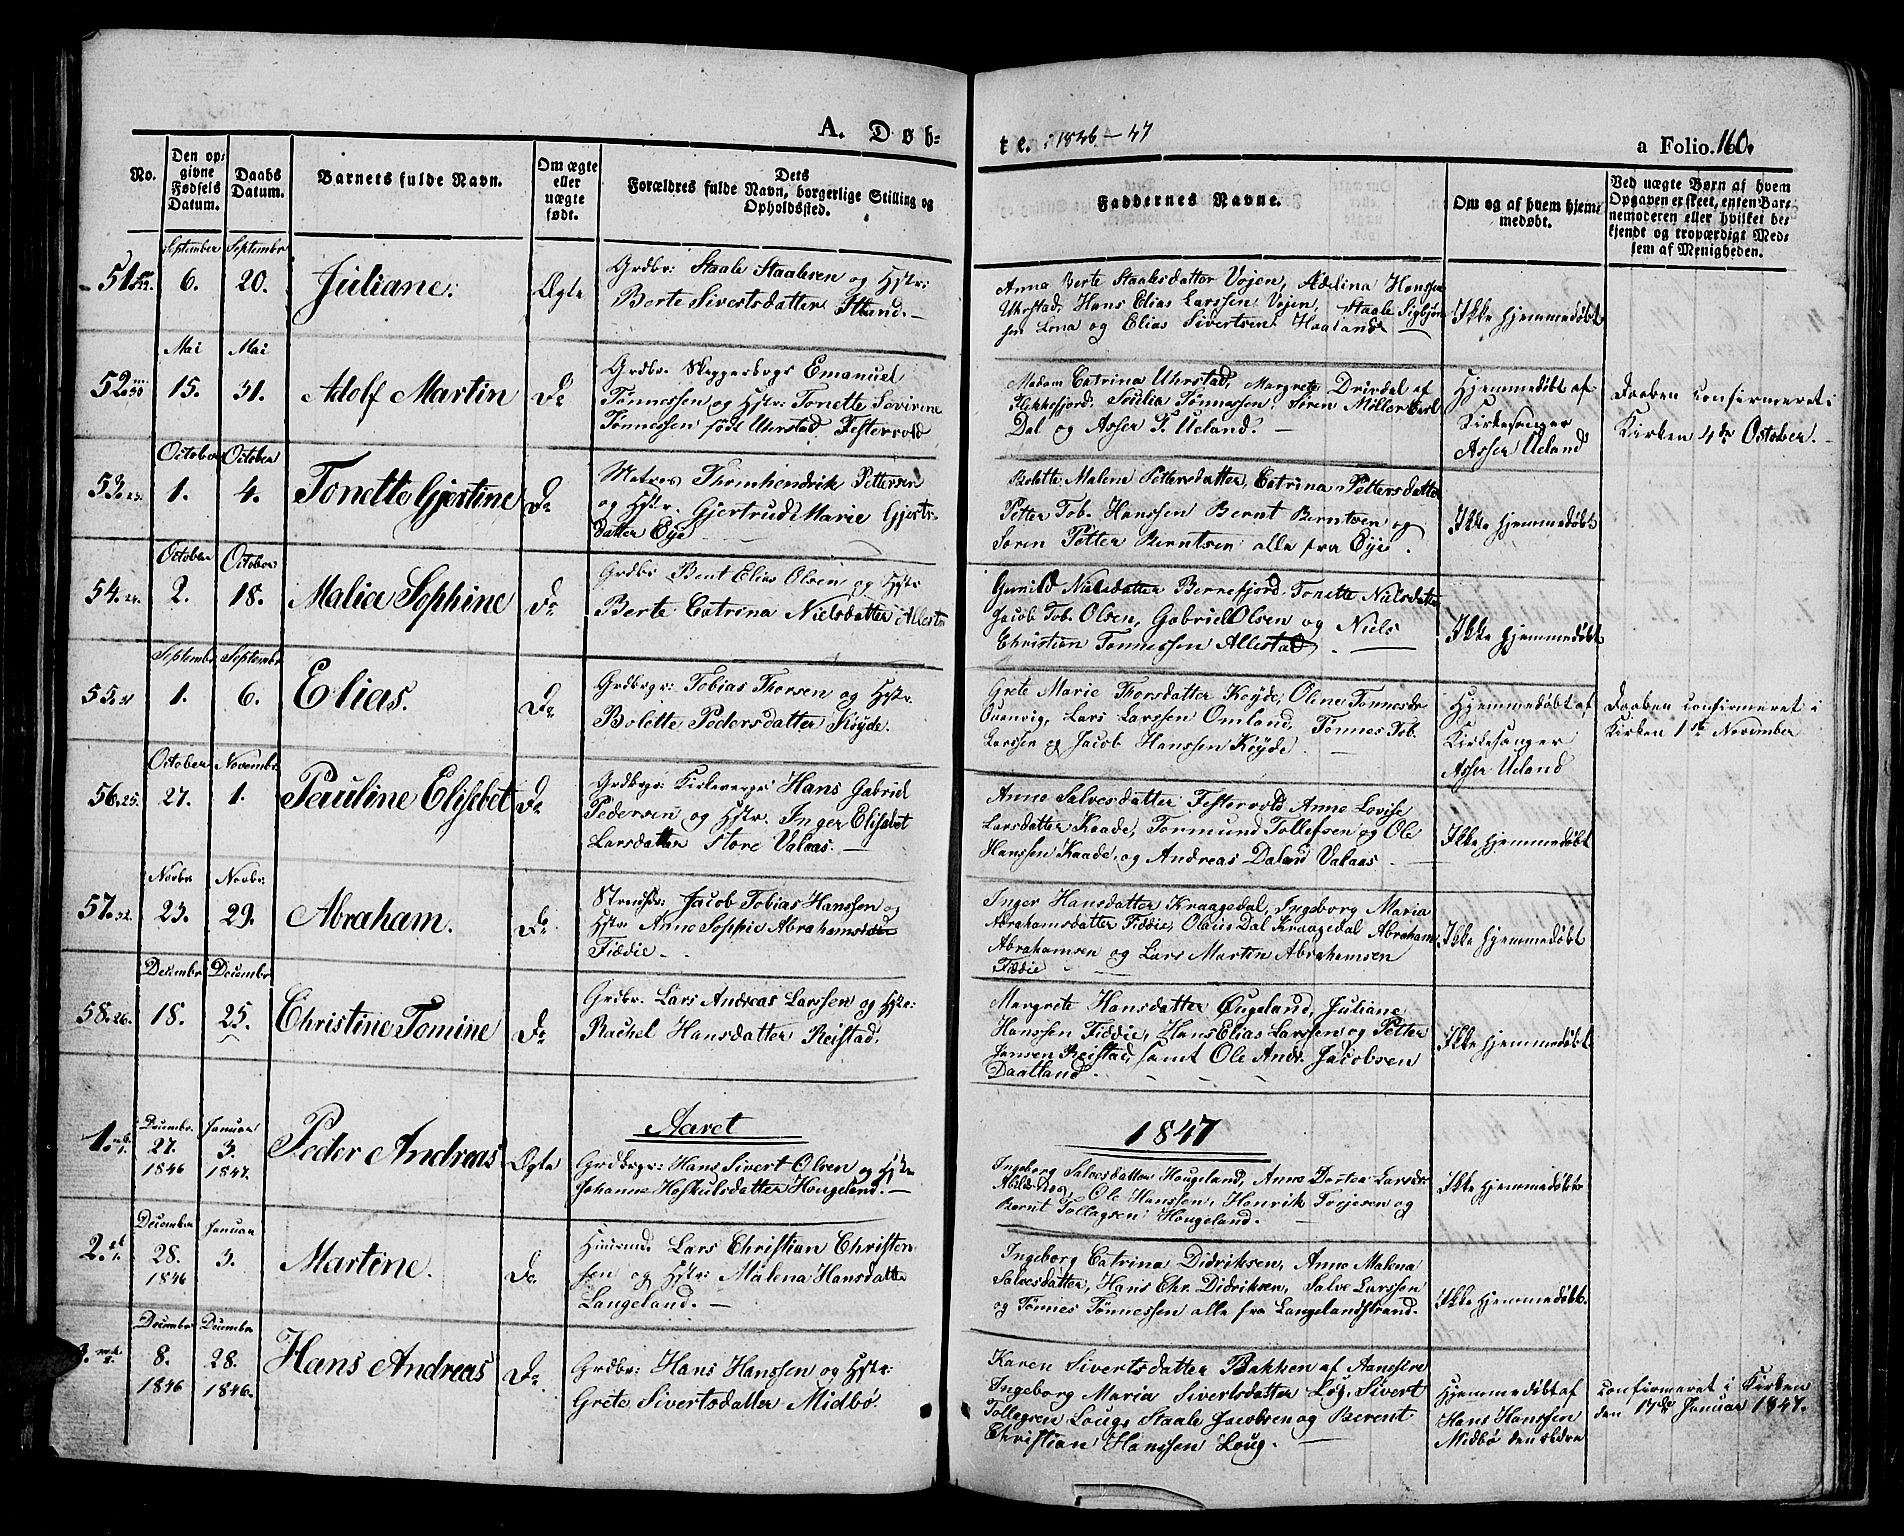 A. Døb-
te. 1846-47
a Folio. 160.
No.
Den op-
givne
Fødsels
Datum.
Daabs
Datum.
Barnets fulde Navn.
Om ægte
eller
uægte
født.
Dets
Forældres fulde Navn, borgerlige Stilling og
Opholdssted.
Faddernes Navne.
Om og af hvem hjem-
medøbt.
Ved uægte Børn af hvem
Opgaven er skeet, enten Bar-
nemoderen eller hvilket be-
kjendt og troværdigt Med-
lem af Menigheden.
51.
September
6.
September
20.
Juliane.
Ægte
Grdbr: Staale Staalesen og Hstr:
Berte Sivertsdatter Stund.
Anna Berte Staalesdatter Vøjen, Adelina Hanssen
Uhrstad, Hans Elias Larssen Vøjen, Staale Sigbjørn-
sen Lona og Elias Sivertsen Haaland
Ikke hjemmedøbt
52.
Mai
15.
Mai
31.
Adolf Martin
Do
Grdbr. Skyggesborgs Emanuel
Tønnessen og Hstr: Tonette Sovirine
Tønnessen født Uhrstad, Festervold
Madam Catrina Uhrstad, Margrete Drivdal af
Flekkefjord, Soelia Tønnessen, Søren Møller
Dal og Asser T. Ueland.
Hjemmedøbt af
Kirkesanger
Asser Ueland
Daaben confirmeret i
Kirken 4de October.
53.
October
1.
October
4.
Tonette Gjertine
Do
Matros Thrinhendrik Pettersen
og Hstr. Gjertrud Marie Gjerts-
datter Eye
Bolette, Malene Pettersdatter, Catrina Pettersdatter
Petter Tob. Hanssen Bernt Berntsen og
Søren Petter Berntsen alle fra Øye.
Ikke hjemmedøbt
54.
October
2.
October
18.
Malia Sophine
Do
Grdbr Bent Elias Olsen og Hstr
Berte Catrina Nielsdatter Allestad
Gunild Nielsdatter Bernefjord, Tonette Nielsdatter
Jacob Tob. Olsen, Gabriel Olsen og Niels
Christian Tønnessen Allestad.
Ikke hjemmedøbt
55.
September
1.
September
6.
Elias.
Do
Grdbrgr: Tobias Thorsen og Hstr.
Bolette Pedersdatter Køyde.
Grete Marie Thorsdatter Køyde, Oline Tønnesdr
Quanvig, Lars Larssen Omland, Tønnes Tob.
Larssen og Jacob Hanssen Køyde.
Hjemmedøbt af
Kirkesanger
Asser Ueland
Daaben confirmeret i
Kirken 1ste November
56. 25.
October
27.
Novembr.
1.
Pauline Elisebet
Do
Grdbrgr: Kirkeværger Hans Gabriel
Pedersen og Hstr. Inger Elisebet
Larsdatter Store Valaas.
Anne Salvesdatter Festervold Anne Lovise
Larsdatter Kaade, Tormund Tollefsen og Ole
Hanssen Kaade, og Andreas Daland Valaas
Ikke hjemmedøbt
57.
Novbr
23.
Novbr:
29.
Abraham.
Do
Strandsdr: Jacob Tobias Hanssen og
Hstr: Anne Sophie Abrahamsdtr
Fidde.
Inger Hansdatter Kraagedal, Ingeborg Maria
Abrahamsdatter Fidde, Olaus Dal Kraagedal Abraham
Abrahamsen og Lars Martin Abrahamsen
Fidde
Ikke hjemmedøbt
58. 26.
Decembr
18.
Decembr
25.
Christine Tomine
Do
Grdbr: Lars Andreas Larssen og Hstr:
Rachel Hansdatter Reistad.
Margrete Hansdatter Øugeland, Juliane
Hanssen Fidde, Hans Elias Larssen og Petter
Jansen Reistad, samt Ole Andr. Jacobsen
Daatland.
Ikke hjemmedøbt
Aaret
1847
1.
Decembr.
27.
1846
Januar
3.
1847.
Peder Andreas
Ægte
Grdbrgr: Hans Sivert Olsen og Hstr
Johanne Hoskulsdatter Hougeland.
Ingeborg Salvesdatter Hougeland, Anne Dortea Larsdr
Ole Hanssen, Henrik Torjesen og
Bernt Tollagsen Hougeland.
Ikke hjemmedøbt
2.
Decembr
28.
1846
Januar
3.
Martine.
Do.
Huusmd. Lars Christian Christen-
sen og Hstr: Malena Hansdatter
Langeland.
Ingeborg Catrina Didriksen, Anne Malena
Salvesdatter, Hans Chr. Didriksen, Salve Larssen
og Tønnes Tønnessen alle fra Langelandstrand.
Ikke hjemmedøbt.
3.
Decembr
8.
1846
Decembr
28.
1846.
Hans Andreas
Do
Grdbr: Hans Hanssen og Hstr:
Grete Sivertsdatter Midbø.
Karen Sivertsdatter Bakken af Aanesire
Ingeborg Maria Sivertsdatter Løg, Sivert
Tollegsen Loug, Staale Jacobsen og Berent
Christian Hanssen Loug.
Hjemmedøbt af
Hans Hanssen
Midbø den ældre
confirmeret i Kirken
den 17de Januar 1847.